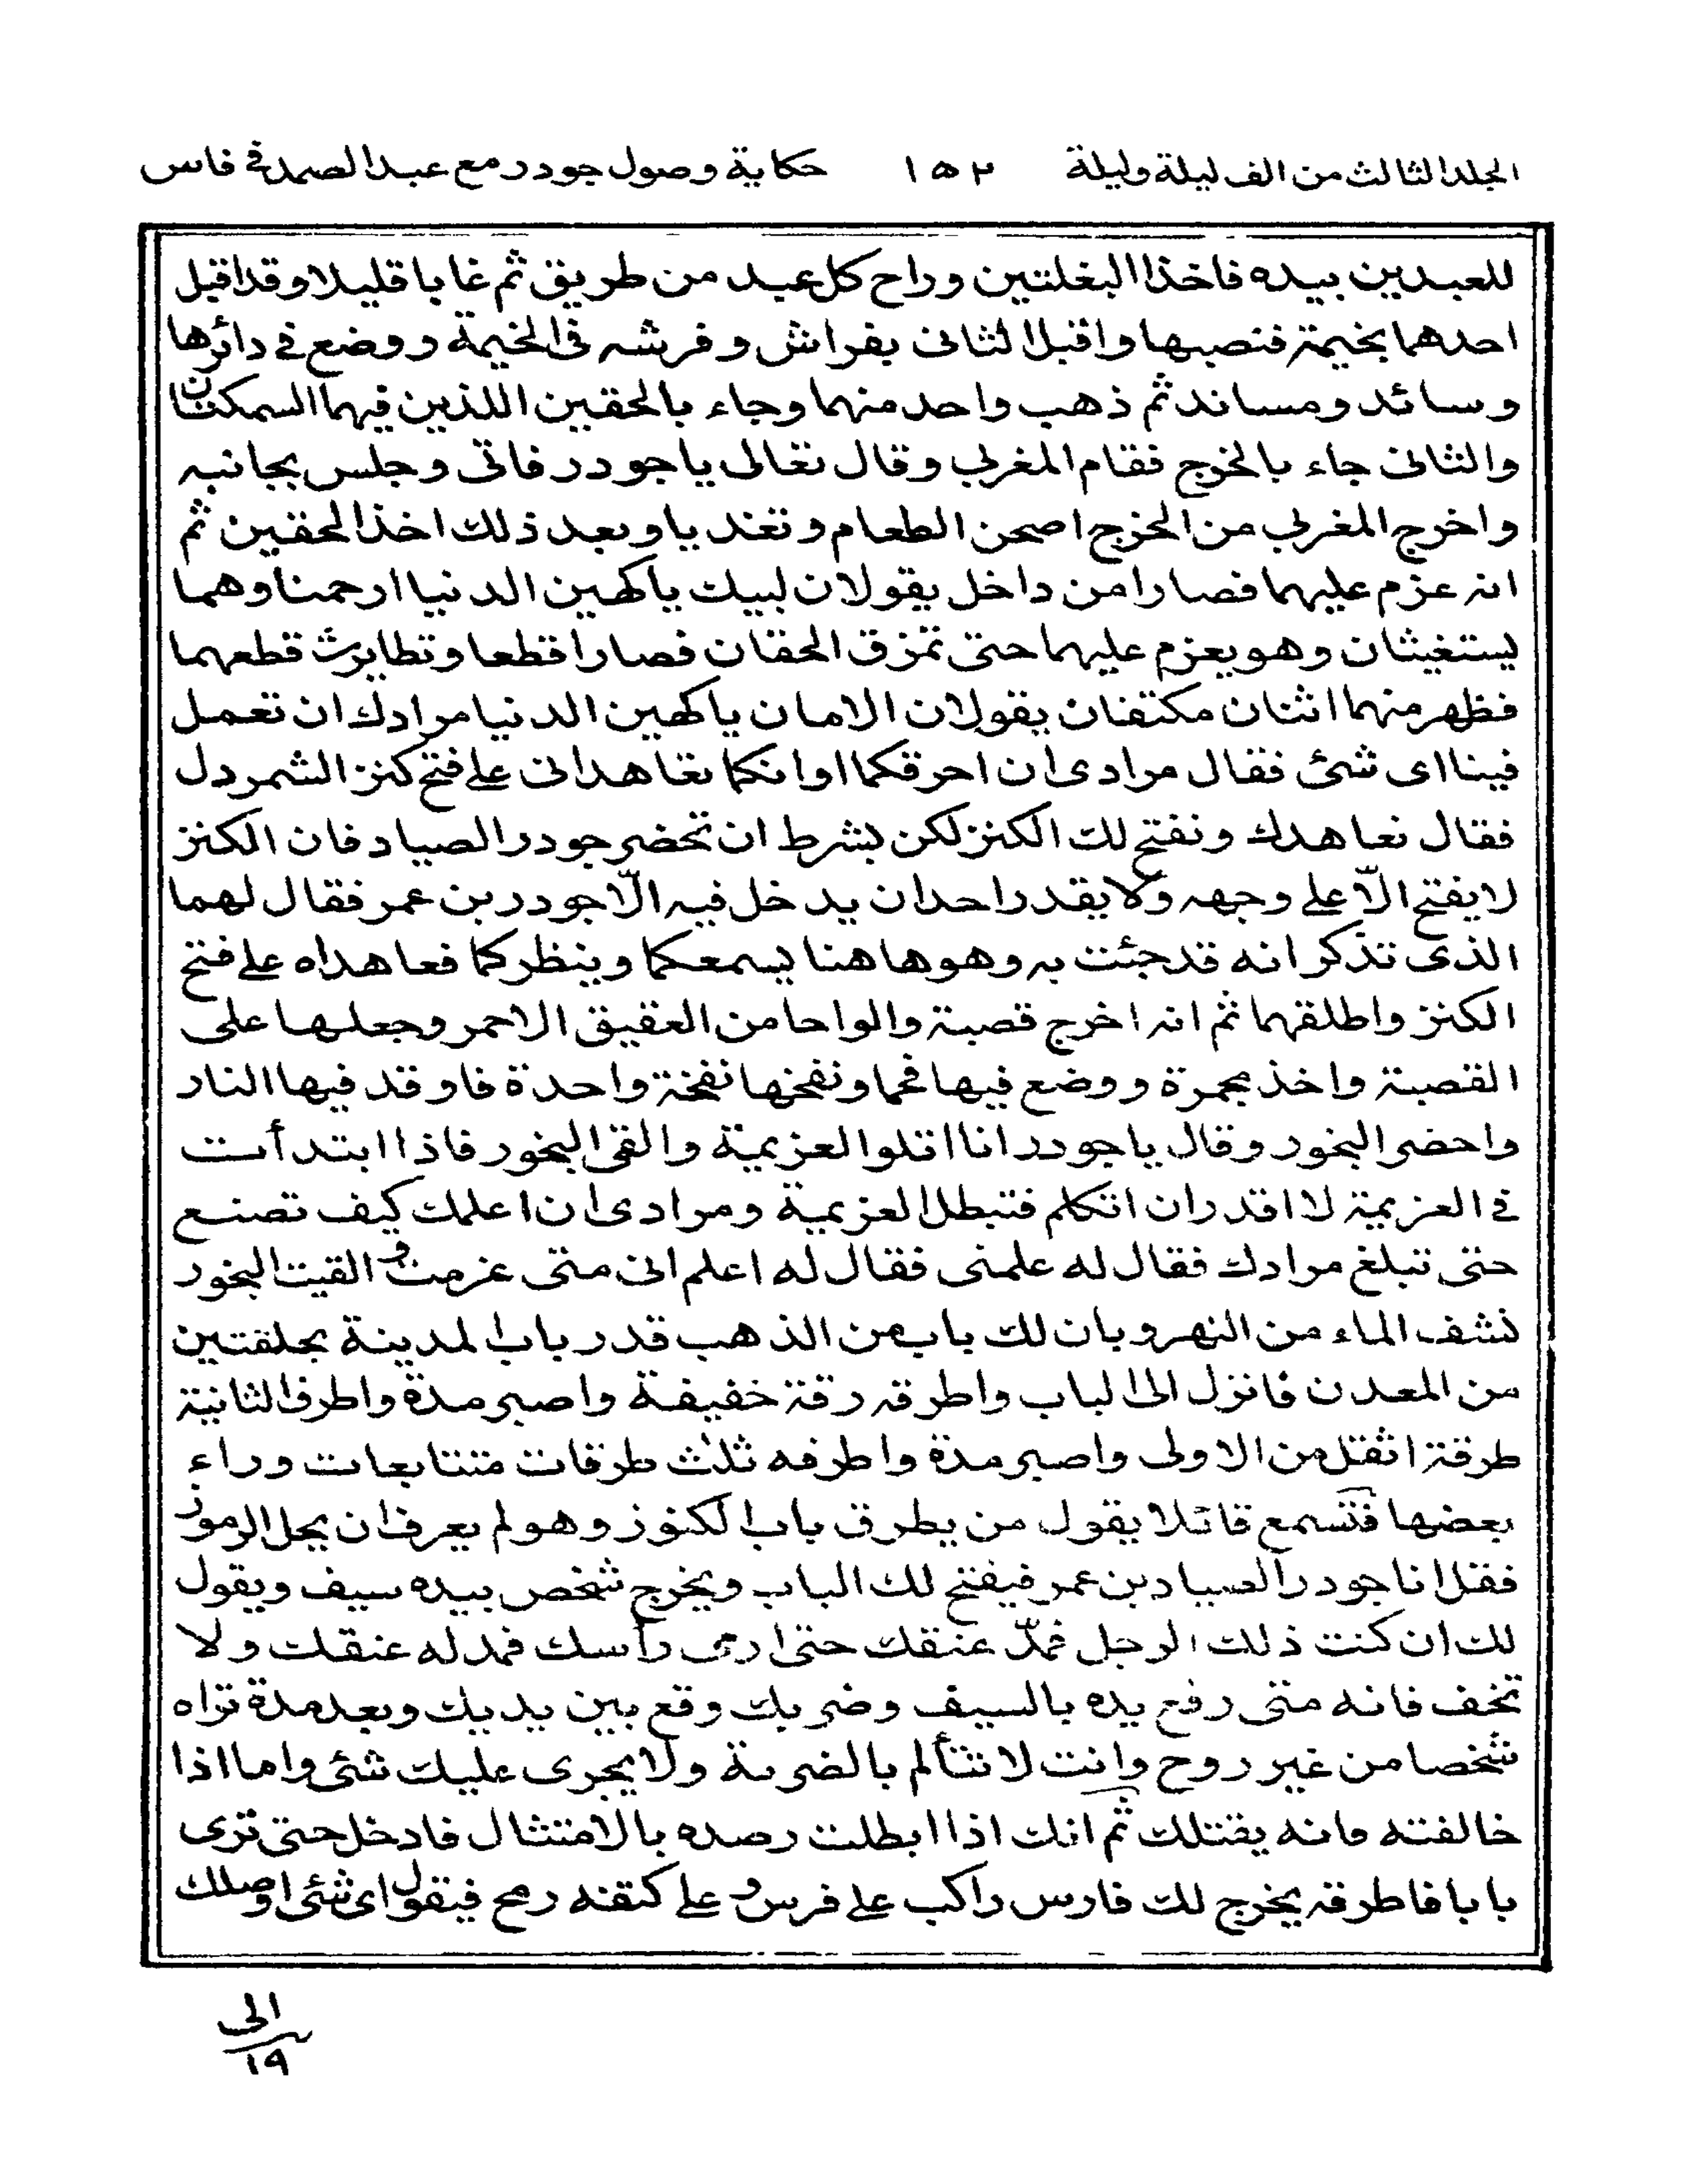 المجلد الثالث من الف ليلة وليلة ١٥٢ حكاية وصول جودر مع عبد الصمد في فاس
للعبدين بيده فاخذا البغلتين وراح كل عبد من طريق ثم غابا قليلا وقد اقبل
احدهما بخيمة فنصبها واقبل الثانى بفراش وفرشه فى الخيمة ووضع في دائرها
وسائد ومساند ثم ذهب واحد منهما وجاء بالحقين اللذين فيهما السمكتان
والثانى جاء بالخرج فقام المغربي وقال تعالى ياجودر فاتى وجلس بجانبه
واخرج المغربي من الخرج اصحن الطعام وتغديا وبعد ذلك اخذ الحقين ثم
انه عزم عليهما فصارا من داخل يقولان لبيك ياكهين الدنيا ارحمنا وهما
يستغيثان وهو يعزم عليهما حتى تمزق الحقان فصارا قطعا وتطايرت قطعهما
فظهر منهما اثنان مكتفان يقولان الامان ياكهين الدنيا مرادك ان تعمل
فينا اى شئ فقال مرادى ان احرقكما اوانكما تعاهدانى على فتح كنز الشمردل
فقال نعاهدك ونفتح لك الكنز لكن بشرط ان تحضر جودر الصياد فان الكنز
لايفتح الّا على وجهه ولايقدر احد ان يدخل فيه الّا جودر بن عمر فقال لهما
الذى تذكرانه قد جئت به وهو هاهنا يسمعكما وينظركما فعاهداه على فتح
الكنز واطلقهما ثم انه اخرج قصبة والواحا من العقيق الاحمر وجعلها على
القصبة واخذ مجمرة ووضع فيها فحما ونفخها نفخة واحدة فاوقد فيها النار
واحضر البخور وقال ياجودر انا اتلوا العزيمة والقى البخور فاذا ابتدأت
في العزيمة لا اقدر ان اتكلم فتبطل العزيمة ومرادى ان اعلمك كيف تصنع
حتى تبلغ مرادك فقال له علمنى فقال له اعلم انى متى عزمت والقيت البخور
نشف الماء من النهر وبان لك باب من الذهب قدر باب المدينة بحلقتين
من المعدن فانزل الى الباب واطرقه رقة خفيفة واصبر مدة واطرق الثانية
طرقة اثقل من الاولى واصبر مدة واطرقه ثلث طرقات متتابعات وراء
بعضها فتسمع قائلا يقول من يطرق باب الكنوز وهو لم يعرف ان يحل الرموز
فقل انا جودر الصياد بن عمر فيفتح لك الباب ويخرج شخص بيده سيف ويقول
لك ان كنت ذلك الرجل فمدّ عنقك حتى ارمى رأسك فمد له عنقك ولا
تخف فانه متى رفع يده بالسيف وضربك وقع بين يديك وبعد مدة تراه
شخصا من غير روح وانت لا تتألم بالضربة ولا يجرى عليك شئ واما اذا
خالفته فانه يقتلك ثم انك اذا ابطلت رصده بالامتثال فادخل حتى ترى
بابا فاطرقه يخرج لك فارس راكب على فرس وعلى كتفه رمح فيقول اى شئ اوصلك
الى
١٩